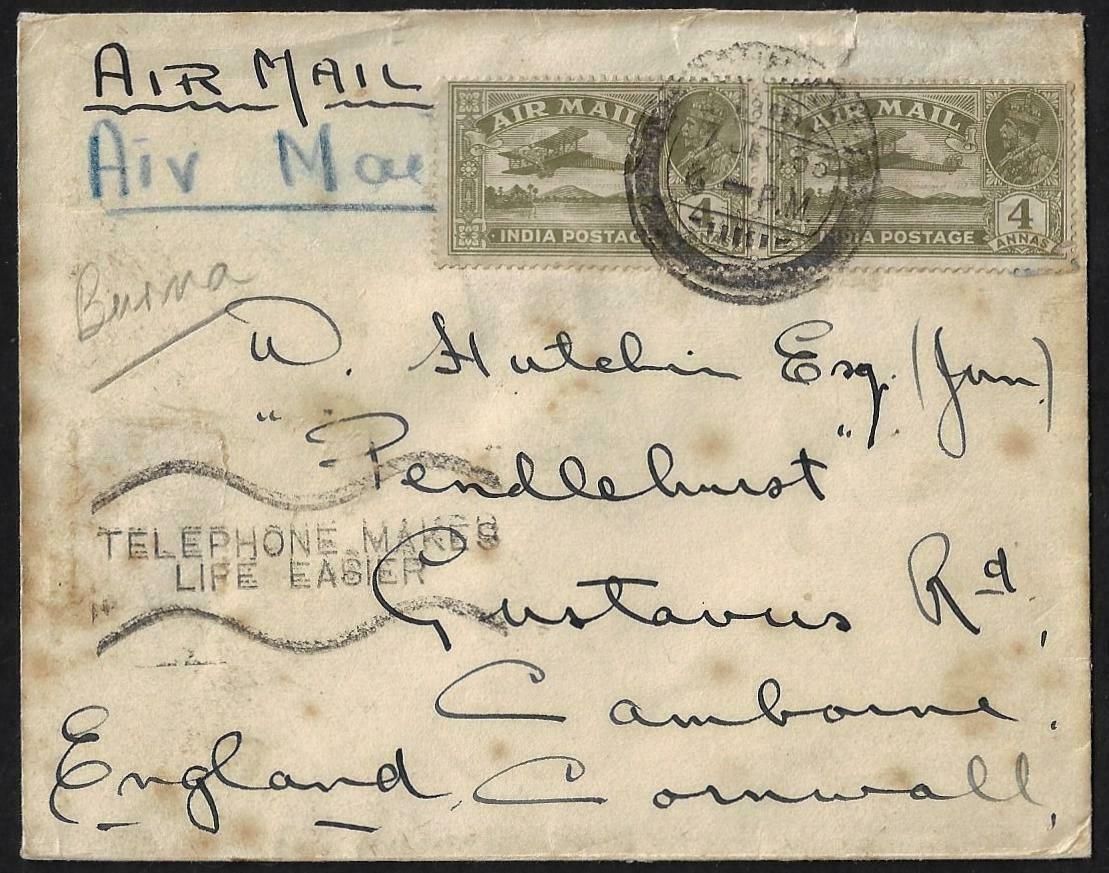 AIR MAIL
Air Mai
AIR MAIL
INDIA POSTAG
4
AIR MAIL
DIA POSTAGE
4
ANNAS
7 DEC 33
6 - P.M
Burma
W. Hutchin Esq. (Jun)
"Pendlehurst"
TELEPHONE MAKES
LIFE EASIER
Gustavus Rd,
Camborne,
England, Cornwall,